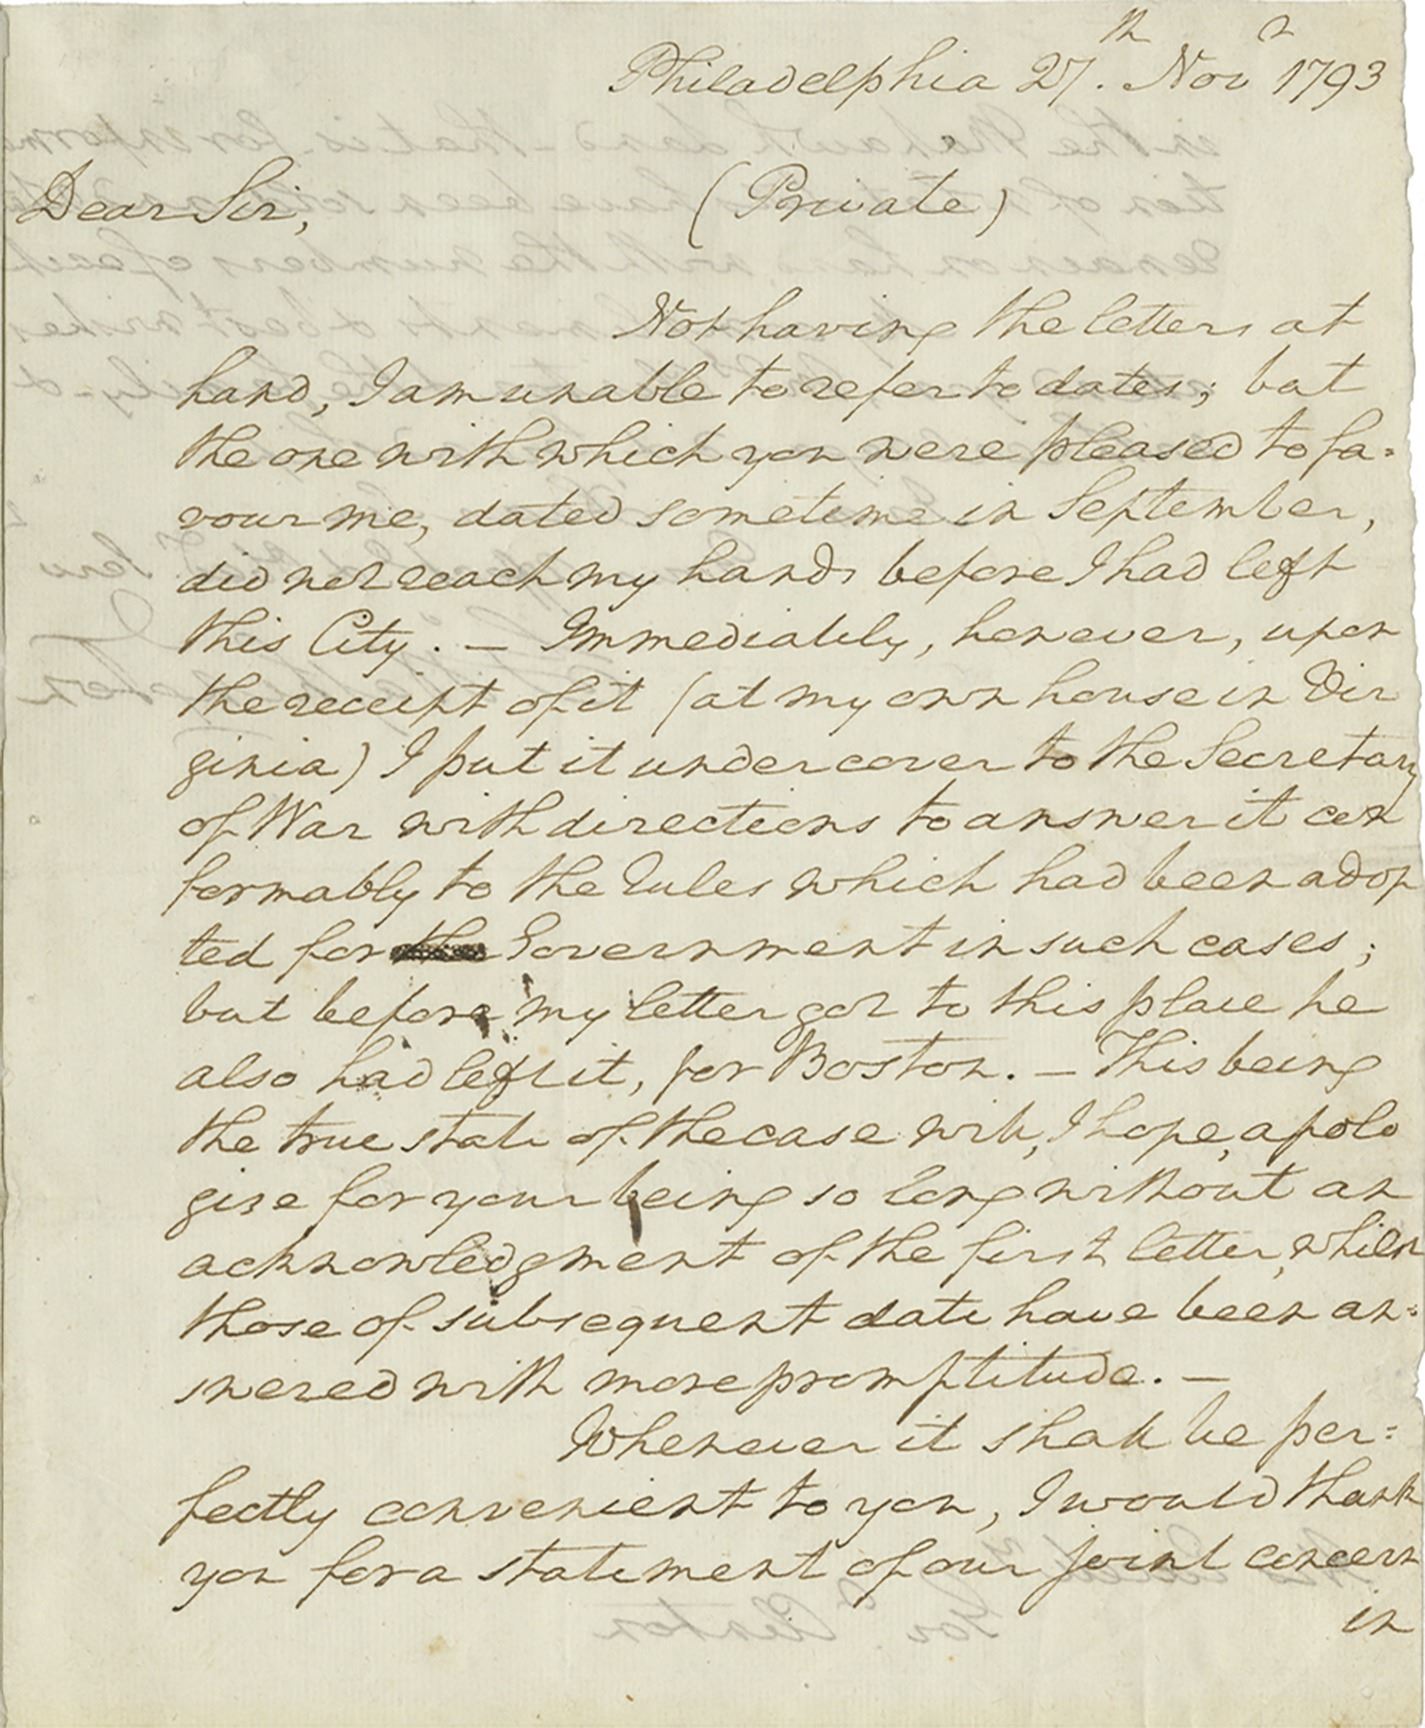 Philadelphia 27th. Novr 1793
Dear Sir,
(Private)
Not having the letters at
hand, I am unable to refer to dates; but
the one with which you were pleased to fa=
vour me, dated sometime in September,
did not reach my hands before I had left
this City. — Immediately, however, upon
the receipt of it (at my own house in Vir
ginia) I put it under cover to the Secretary
of War with directions to answer it con
formably to the rules which had been adop
ted for the Government in such cases;
but before my letter got to this place he
also had left it, for Boston. — This being
the true state of the case will, I hope, apolo
gise for your being so long without an
acknowledgment of the first letter, whilst
those of subsequent date have been an=
swered with more promptitude. —
Whenever it shall be per=
fectly convenient to you, I would thank
you for a statement of our joint concern
in